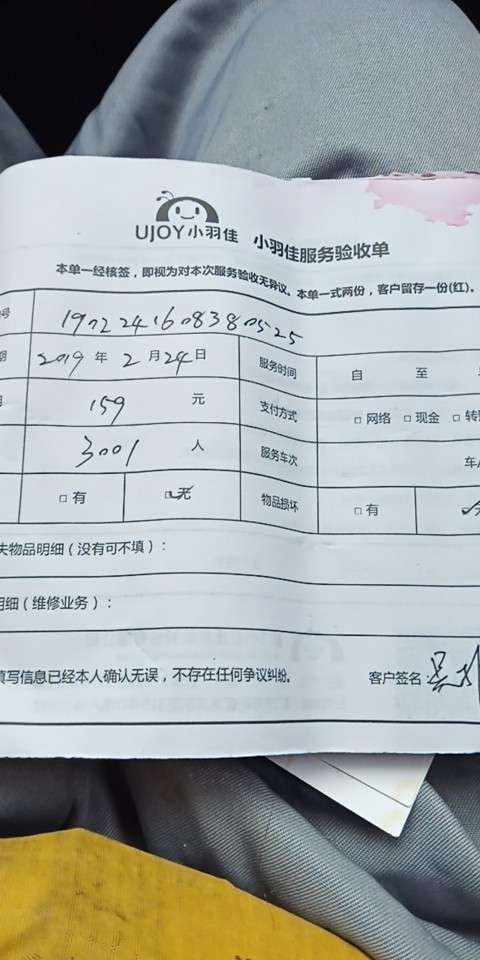 UJOY小羽佳 小羽佳服务验收单
本单一经核签，即视为对本次服务验收无异议。本单一式两份，客户留存一份(红)。
号 190224160838052 5
期 2019 年 2 月 24 日 服务时间 自 至
159 元 支付方式 □ 网络 □ 现金 □ 转账
3001 人 服务车次 车
□ 有 □ 无 物品损坏 □ 有
失物品明细（没有可不填）：
明细（维修业务）：
填写信息已经本人确认无误，不存在任何争议纠纷。 客户签名